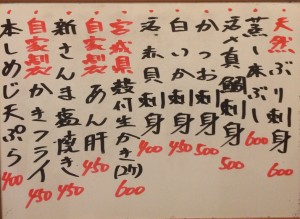 天然ぶり刺身 600
蒸し床ぶし 600
活真鯛刺身 500
かつお刺身 500
白いか刺身 450
活赤貝刺身 400
宮城県殻付生かき(2ケ) 600
自家製あん肝 450
新さんま塩焼き 450
自家製かきフライ 450
本しめじ天ぷら 400